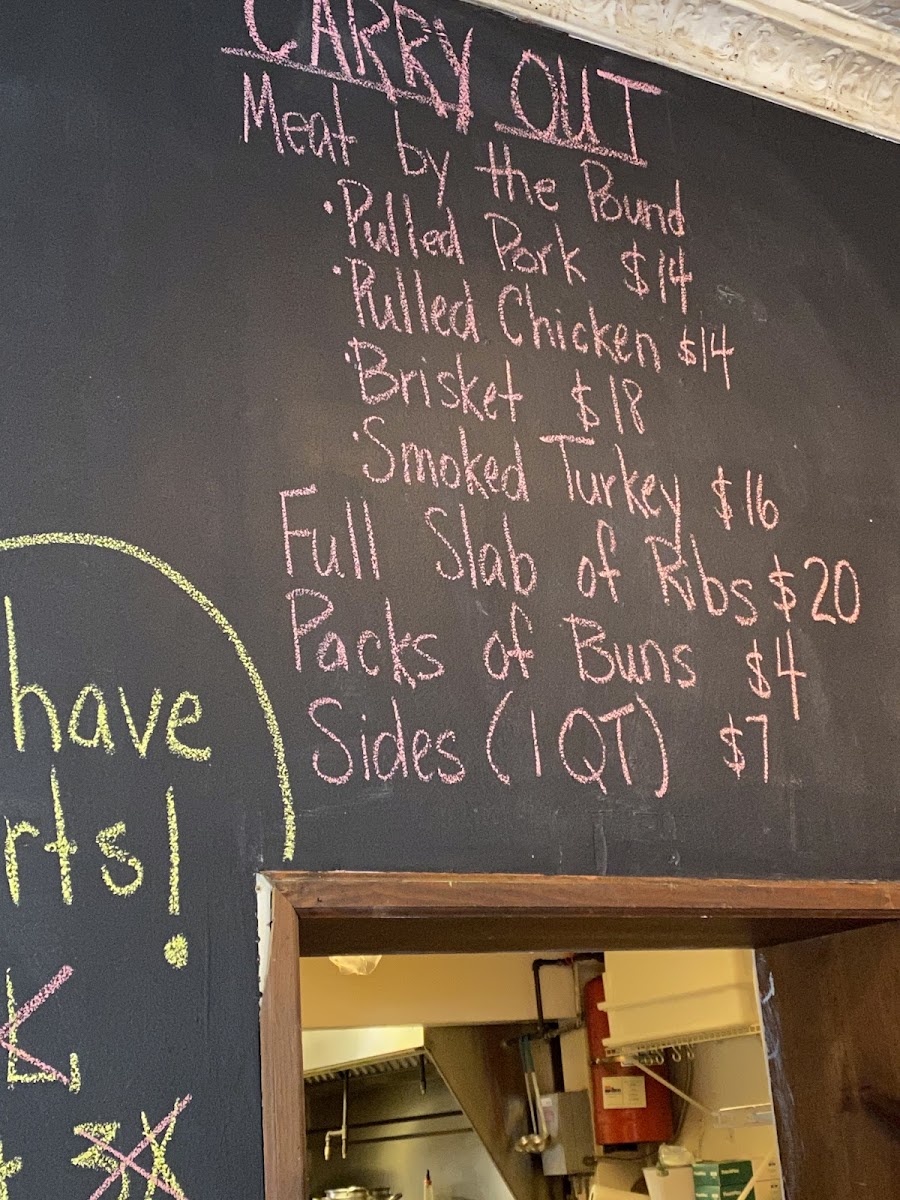 CARRY OUT
Meat by the Pound
· Pulled Pork $14
· Pulled Chicken $14
· Brisket $18
· Smoked Turkey $16
Full Slab of Ribs $20
Packs of Buns $4
Sides (1 QT) $7
have
rts!